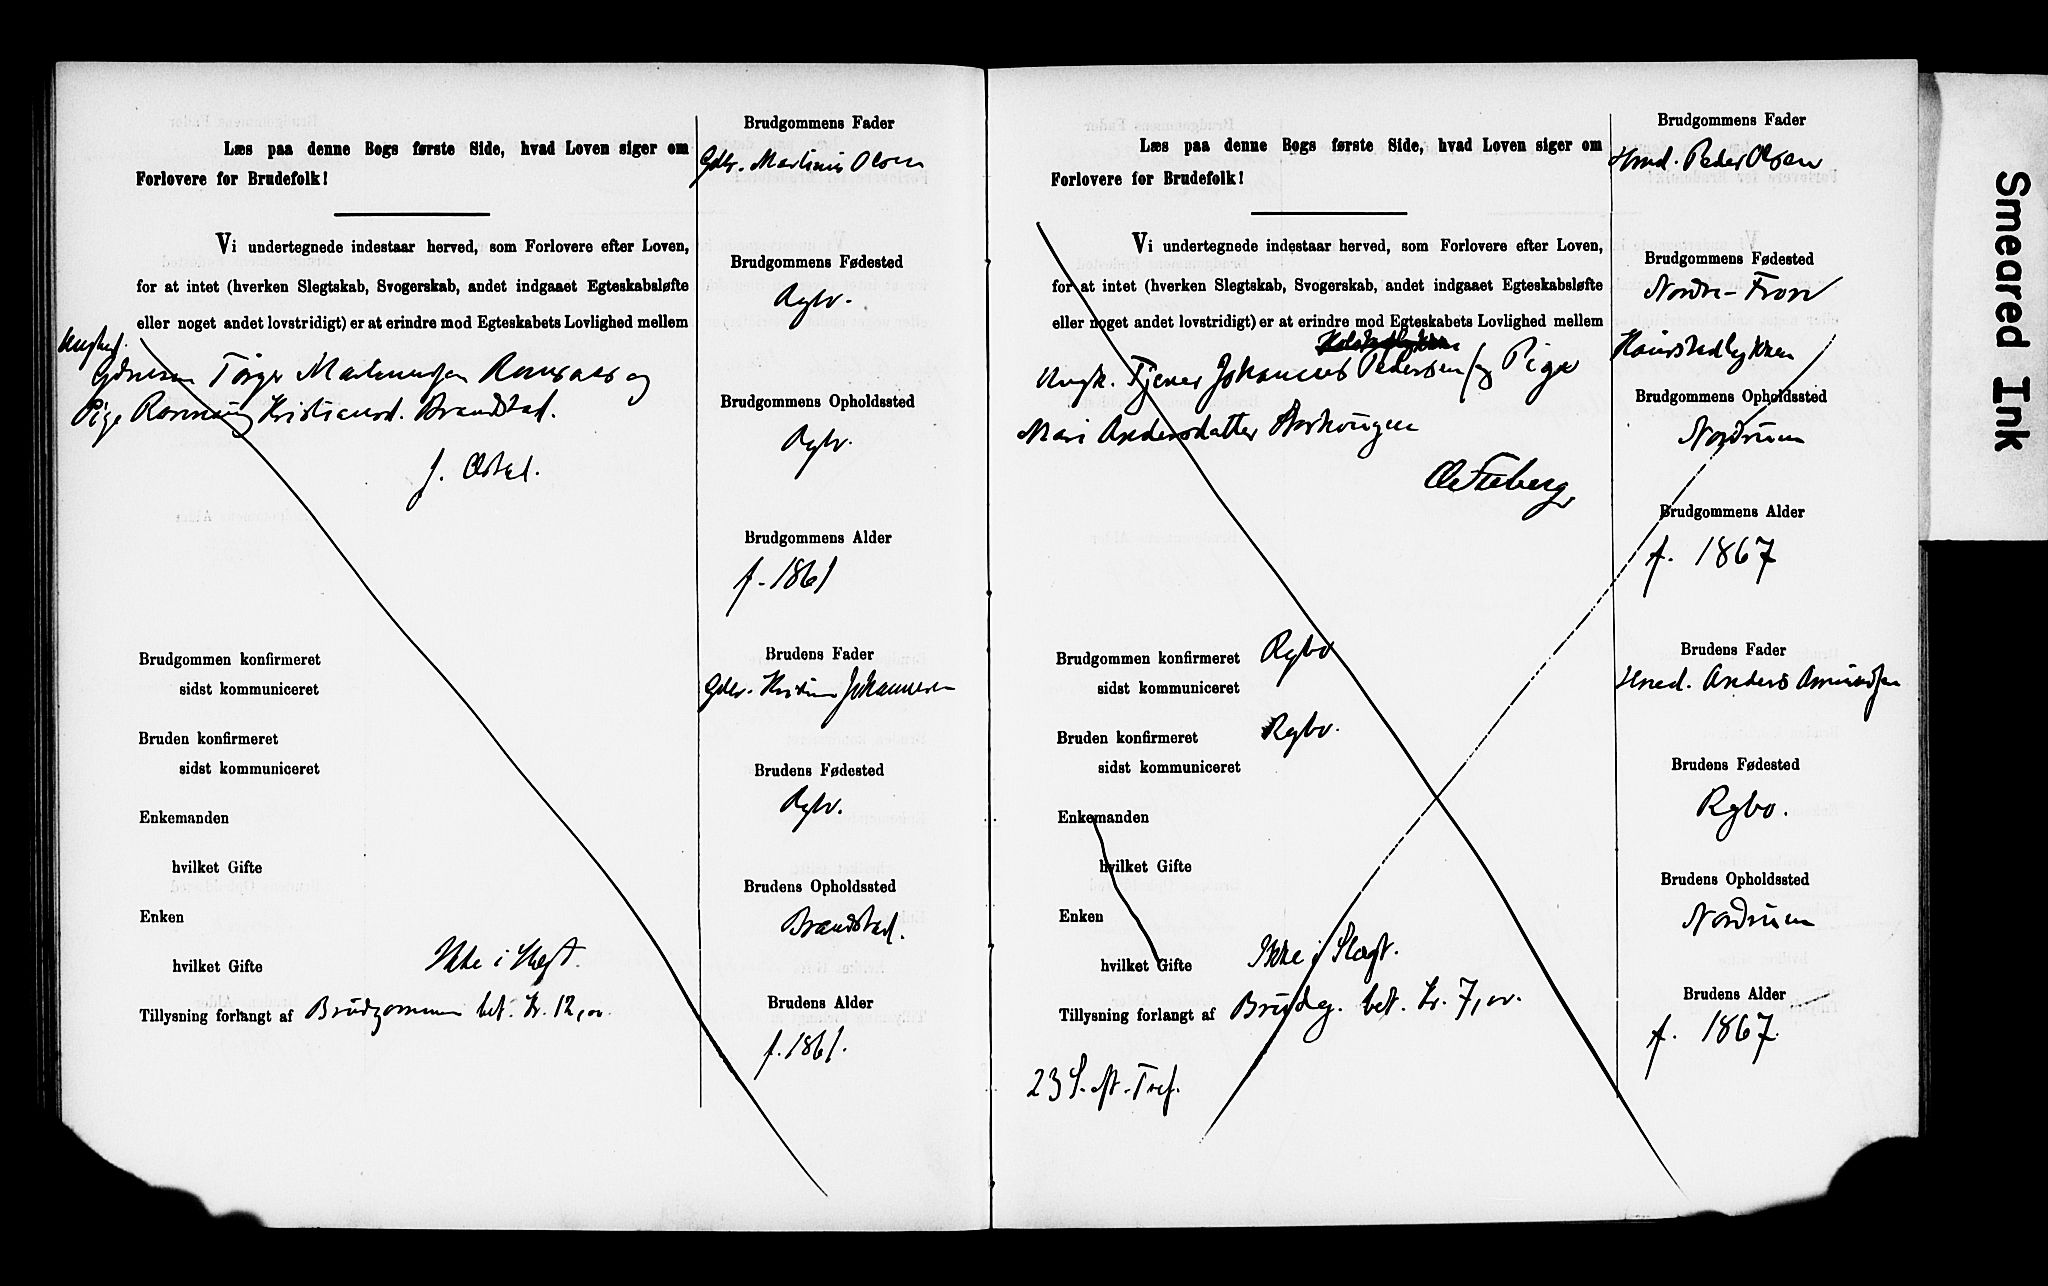 Læs paa denne Bogs første Side, hvad Loven siger om
Forlovere for Brudefolk!
Vi undertegnede indestaar herved, som Forlovere efter Loven,
for at intet (hverken Slegtskab, Svogerskab, andet indgaaet Egteskabsløfte
eller noget andet lovstridigt) er at erindre mod Egteskabets Lovlighed mellem
Ungkarl
Torger Martinussen og
Pige Kristiansd. Brandstad.
Brudgommen konfirmeret
sidst kommuniceret
Bruden konfirmeret
sidst kommuniceret
Enkemanden
hvilket Gifte
Enken
hvilket Gifte Ikke i Slegt.
Tillysning forlangt af Brudgommen bet. Kr. 12,00.
Brudgommens Fader
Gdbr. Martinus Olsen
Brudgommens Fødested
Rgbo.
Brudgommens Opholdssted
Rgbo.
Brudgommens Alder
f. 1861
Brudens Fader
Gdbr. Kristian Johannesen
Brudens Fødested
Rgbo.
Brudens Opholdssted
Brandstad.
Brudens Alder
f. 1861.
Læs paa denne Bogs første Side, hvad Loven siger om
Forlovere for Brudefolk!
Vi undertegnede indestaar herved, som Forlovere efter Loven,
for at intet (hverken Slegtskab, Svogerskab, andet indgaaet Egteskabsløfte
eller noget andet lovstridigt) er at erindre mod Egteskabets Lovlighed mellem
Ungk. Tjener Johannes Pedersen og Pige
Mari Andersdatter
Ole Fleberg
Brudgommen konfirmeret Rgbo
sidst kommuniceret
Bruden konfirmeret Rgbo.
sidst kommuniceret
Enkemanden
hvilket Gifte
Enken
hvilket Gifte Ikke i Slægt.
Tillysning forlangt af Brudg. bet. Kr. 7,00.
23 S. eft. Tref.
Brudgommens Fader
Hmd. Peder Olsen
Brudgommens Fødested
Nordre-Fron
Brudgommens Opholdssted
Nordrum
Brudgommens Alder
f. 1867
Brudens Fader
Hmd. Anders Amundsen
Brudens Fødested
Rgbo.
Brudens Opholdssted
Nordrum
Brudens Alder
f. 1867.
Smeared Ink